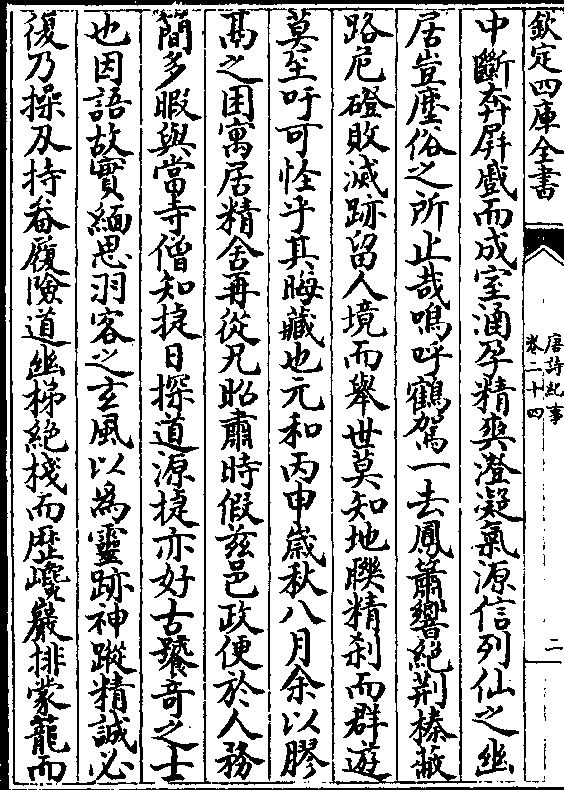 欽定四庫全書
唐詩紀事
卷二十四
二
中斷奔屏戲而成室涵孕精爽澄凝氣源信列仙之幽
居豈塵俗之所止哉嗚呼鶴駕一去鳳簫響絶荆榛蔽
路危磴敗滅跡留人境而舉世莫知地聯精刹而群遊
莫至吁可怪乎其晦藏也元和丙申歲秋八月余以膠
髙之困寓居精舍再從兄昭肅時假兹邑政便於人務
簡多暇與當寺僧知捷日探道源捷亦好古饕奇之士
也因語故實緬思羽客之玄風以為靈跡神蹤精誠必
復乃操刀持畚履險道幽梯絶棧而歴巉巖排蒙蘢而